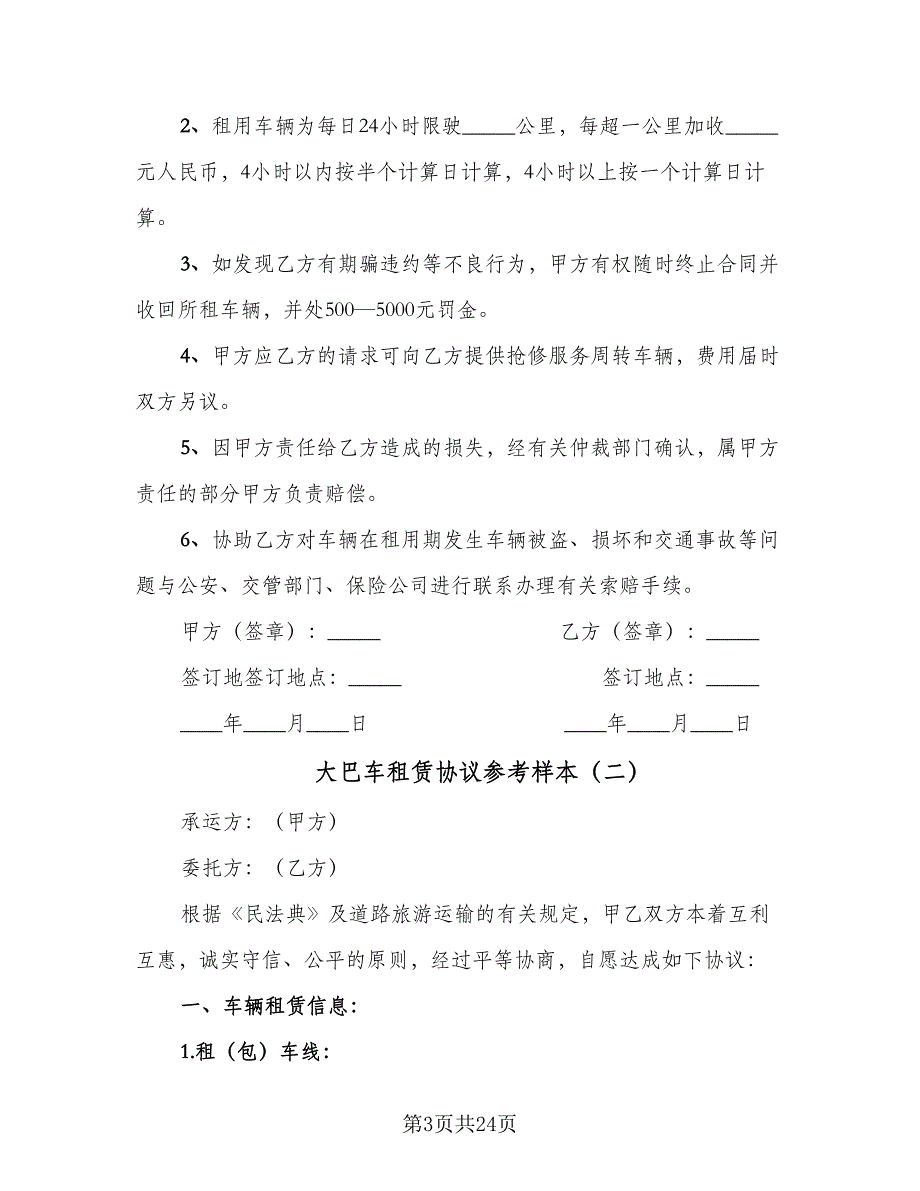 2、租用车辆为每日24小时限驶_____公里，每超一公里加收_____
元人民币，4小时以内按半个计算日计算，4小时以上按一个计算日计
算。
3、如发现乙方有期骗违约等不良行为，甲方有权随时终止合同并
收回所租车辆，并处500—5000元罚金。
4、甲方应乙方的请求可向乙方提供抢修服务周转车辆，费用届时
双方另议。
5、因甲方责任给乙方造成的损失，经有关仲裁部门确认，属甲方
责任的部分甲方负责赔偿。
6、协助乙方对车辆在租用期发生车辆被盗、损坏和交通事故等问
题与公安、交管部门、保险公司进行联系办理有关索赔手续。
甲方（签章）：_____ 乙方（签章）：_____
签订地签订地点：_____ 签订地点：_____
____年____月____日 ____年____月____日
大巴车租赁协议参考样本（二）
承运方：（甲方）
委托方：（乙方）
根据《民法典》及道路旅游运输的有关规定，甲乙双方本着互利
互惠，诚实守信、公平的原则，经过平等协商，自愿达成如下协议：
一、车辆租赁信息：
1.租（包）车线：
第3页共24页